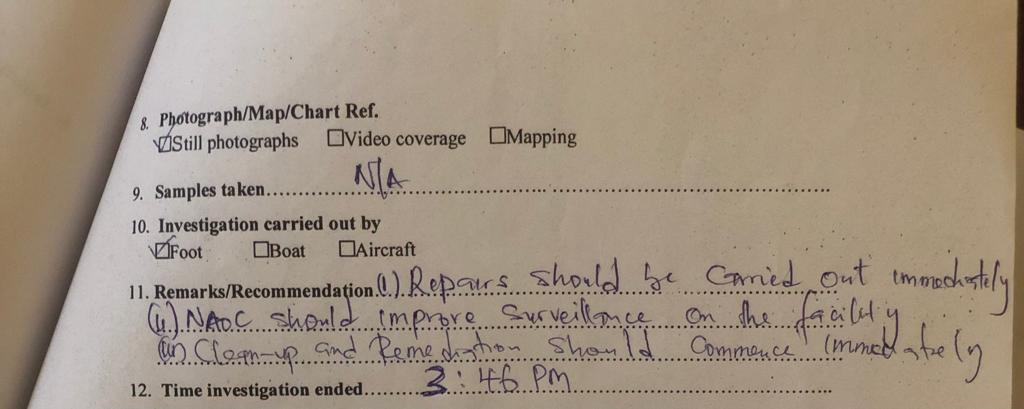 8. Photograph/Map/Chart Ref.
☑Still photographs ☐Video coverage ☐Mapping
9. Samples taken.....N/A.....
10. Investigation carried out by
☑Foot ☐Boat ☐Aircraft
11. Remarks/Recommendation (i) Repairs should be carried out immediately
(ii) NAOC should improve surveillance on the facility
(iii) Clean-up and Remediation should commence immediately
12. Time investigation ended.....3:46 PM.....